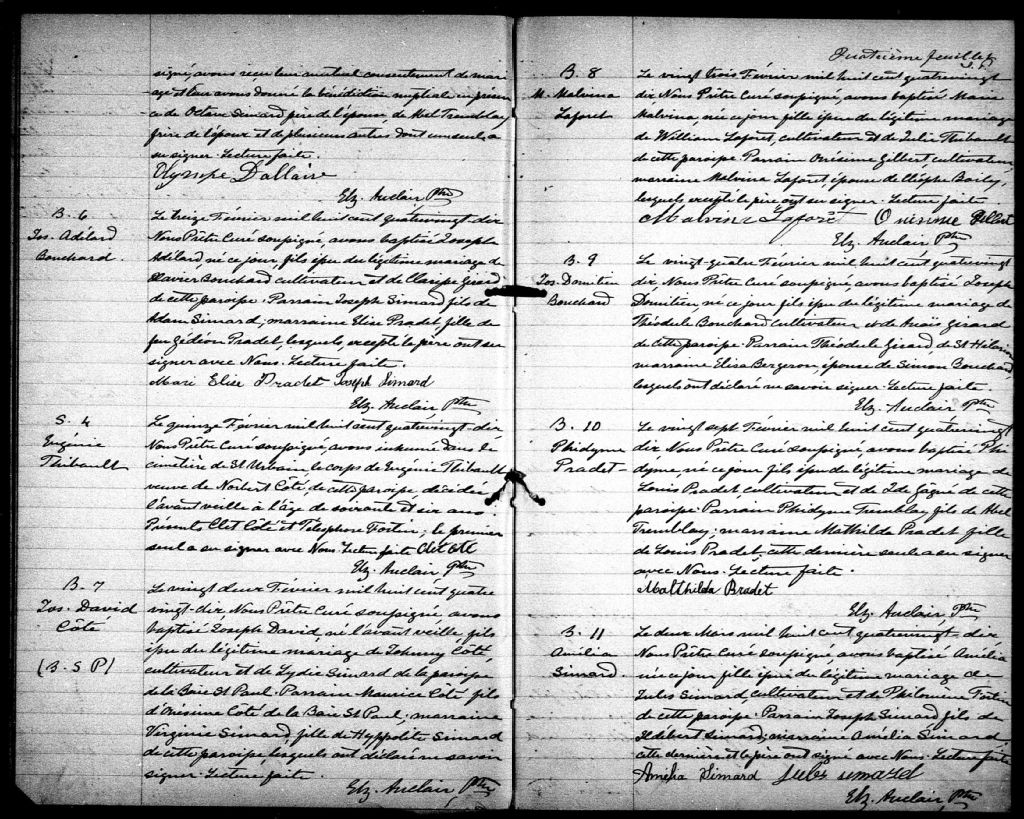 signé, avons reçu leur mutuel consentement de mari
age et leur avons donné la bénédiction nuptiale en présen
ce de Octave Simard père de l'épouse, de Abel Tremblay
frère de l'époux et de plusieurs autres dont un seul a
su signer. Lecture faite.
Ulysse Dallaire
Elz. Auclair Ptre
B. 6
Jos. Adélard
Bouchard.
Le treize Février mil huit cent quatrevingt dix
Nous Prêtre Curé soussigné, avons baptisé Joseph
Adélard né ce jour, fils issu du légitime mariage de
Xavier Bouchard cultivateur et de Clarisse Girard
de cette paroisse. Parrain Joseph Simard fils de
Adam Simard, marraine Elise Pradet, fille de
feu Gédéon Pradet, lesquels, excepté le père ont su
signer avec Nous. Lecture faite.
Mari Elise Pradet Joseph Simard
Elz. Auclair Ptre
S. 4
Eugénie
Thibault
Le quinze Février mil huit cent quatrevingt-dix
Nous Prêtre Curé soussigné, avons inhumé dans le
cimetière de St Urbain, le corps de Eugénie Thibault
veuve de Norbert Coté, de cette paroisse, décédée
l'avant veille à l'âge de soixante et six ans
Présents Clet Coté et Télesphore Fortin; le premier
seul a su signer avec Nous. Lecture faite Clet Coté
Elz. Auclair Ptre
B. 7
Jos. David
Côté
(B. S P)
Le vingt deux Février mil huit cent quatre
vingt-dix Nous Prêtre Curé soussigné, avons
baptisé Joseph David, né l'avant veille, fils
issu du légitime mariage de Johnny Coté,
cultivateur et de Lydie Simard de la paroisse
de la Baie St Paul. Parrain Maurice Coté fils
d'Onésime Coté de la Baie St Paul, marraine
Virginie Simard, fille de Hyppolite Simard
de cette paroisse, lesquels ont déclaré ne savoir
signer. Lecture faite.
Elz. Auclair, Ptre
Quatrième feuillet
B. 8
M. Malvina
Laforet
Le vingt trois Février mil huit cent quatrevingt
dix Nous Prêtre Curé soussigné, avons baptisé Marie
Malvina, née ce jour fille issue du légitime mariage
de William Laforet, cultivateur et de Julie Thibault
de cette paroisse Parrain Onésime Gilbert cultivateur,
marraine Malvina Laforet, épouse de Cléophe Boily,
lesquels excepté le père ont su signer. Lecture faite
Malvina Laforet Onésime Gilbert
Elz. Auclair Ptre
B. 9
Jos. Domitien
Bouchard
Le vingt-quatre Février mil huit cent quatrevingt
dix, Nous Prêtre Curé soussigné, avons baptisé Joseph
Domitien, né ce jour fils issu du légitime mariage de
Théodule Bouchard cultivateur et de Anaïs Girard
de cette paroisse. Parrain Théodule Girard, de St Hilarion
marraine Elisa Bergeron, épouse de Simon Bouchard,
lesquels ont déclaré ne savoir signer. Lecture faite.
Elz. Auclair Ptre
B. 10
Phidyme
Pradet
Le vingt sept Février mil huit cent quatrevingt
dix Nous Prêtre Curé soussigné, avons baptisé Phi
dyme, né ce jour fils issu du légitime mariage de
Louis Pradet, cultivateur et de Ide Gagné de cette
paroisse. Parrain Phidyme Tremblay fils de Abel
Tremblay; marraine Mathilda Pradet fille
de Louis Pradet; cette dernière seule a su signer
avec Nous. Lecture faite.
Malthilda Bradet
Elz. Auclair, Ptre
B. 11
Amélia
Simard.
Le deux Mars mil huit cent quatrevingt-dix
Nous Prêtre Curé soussigné, avons baptisé Amélia
née ce jour fille issue du légitime mariage de
Jules Simard, cultivateur et de Philomène Fortin
de cette paroisse. Parrain Joseph Simard fils de
Hébert Simard; marraine Amélia Simard,
cette dernière et le père ont signé avec Nous. Lecture faite
Amélia Simard Jules Simard
Elz. Auclair, Ptre